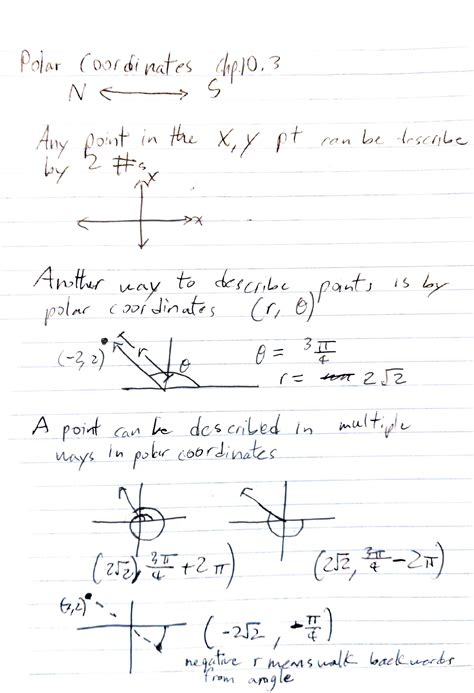 Polar Coordinates chp.10.3
N ⟷ S
Any point in the x, y pt can be describe
by 2 #s
x
x
Another way to describe points is by
polar coordinates (r, θ)
(-3,2) r θ θ = 3π/4
r = 2√2
A point can be described in multiple
ways in polar coordinates
(2√2, 3π/4 + 2π) (2√2, 3π/4 - 2π)
(-2√2, -π/4)
negative r means walk backwards
from angle